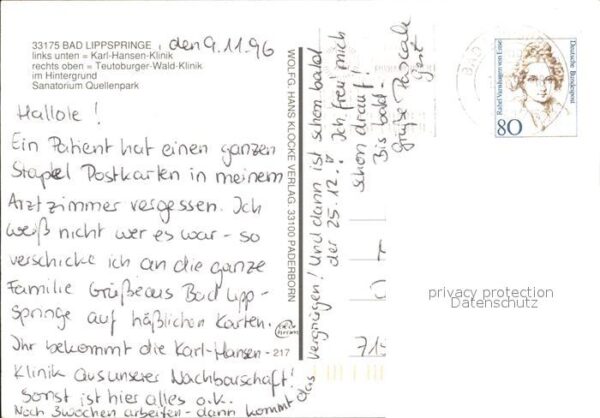 33175 BAD LIPPSPRINGE, den 9.11.96
links unten = Karl-Hansen-Klinik
rechts oben = Teutoburger-Wald-Klinik
im Hintergrund
Sanatorium Quellenpark
Hallole!
Ein Patient hat einen ganzen
Stapel Postkarten in meinem
Arztzimmer vergessen. Ich
weiß nicht wer es war - so
verschicke ich an die ganze
Familie Grüße aus Bad Lipp-
springe auf häßlichen Karten.
Ihr bekommt die Karl-Hansen-
Klinik aus unserer Nachbarschaft!
Sonst ist hier alles o.k.
Noch 3 Wochen arbeiten - dann kommt das
Vergnügen! Und dann ist schon bald
der 25.12.! Ich freu mich
schon drauf!
Bis bald -
Grüße Pascale
WOLFG. HANS KLOCKE VERLAG, 33100 PADERBORN
217
Rahel Varnhagen von Ense
Deutsche Bundespost
80
privacy protection
Datenschutz